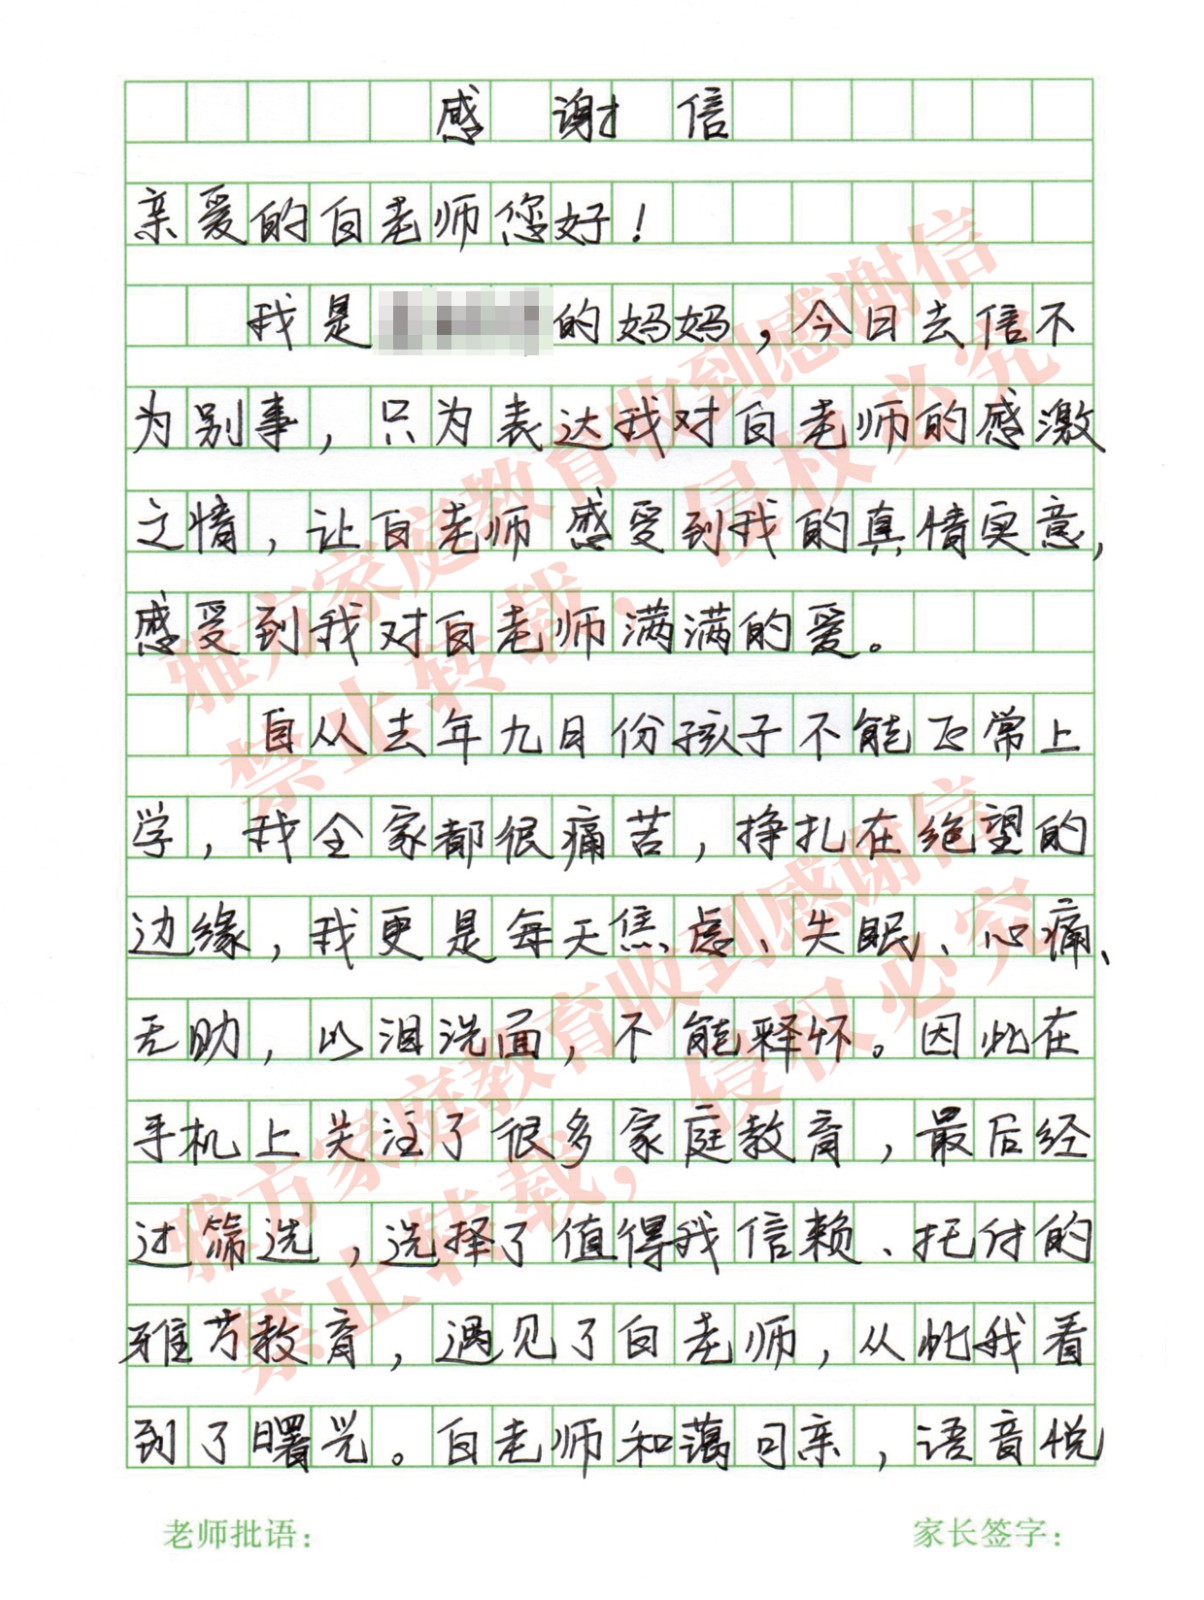 感谢信
亲爱的白老师您好！
我是的妈妈，今日去信不
为别事，只为表达我对白老师的感激
之情，让白老师感受到我的真情实意，
感受到我对白老师满满的爱。
自从去年九月份孩子不能正常上
学，我全家都很痛苦，挣扎在绝望的
边缘，我更是每天焦虑、失眠、心痛、
无助，以泪洗面，不能释怀。因此在
手机上关注了很多家庭教育，最后经
过筛选，选择了值得我信赖、托付的
雅方教育，遇见了白老师，从此我看
到了曙光。白老师和蔼可亲，语音悦
老师批语：
家长签字：
雅方家庭教育收到感谢信
禁止转载，侵权必究
雅方家庭教育收到感谢信
禁止转载，侵权必究